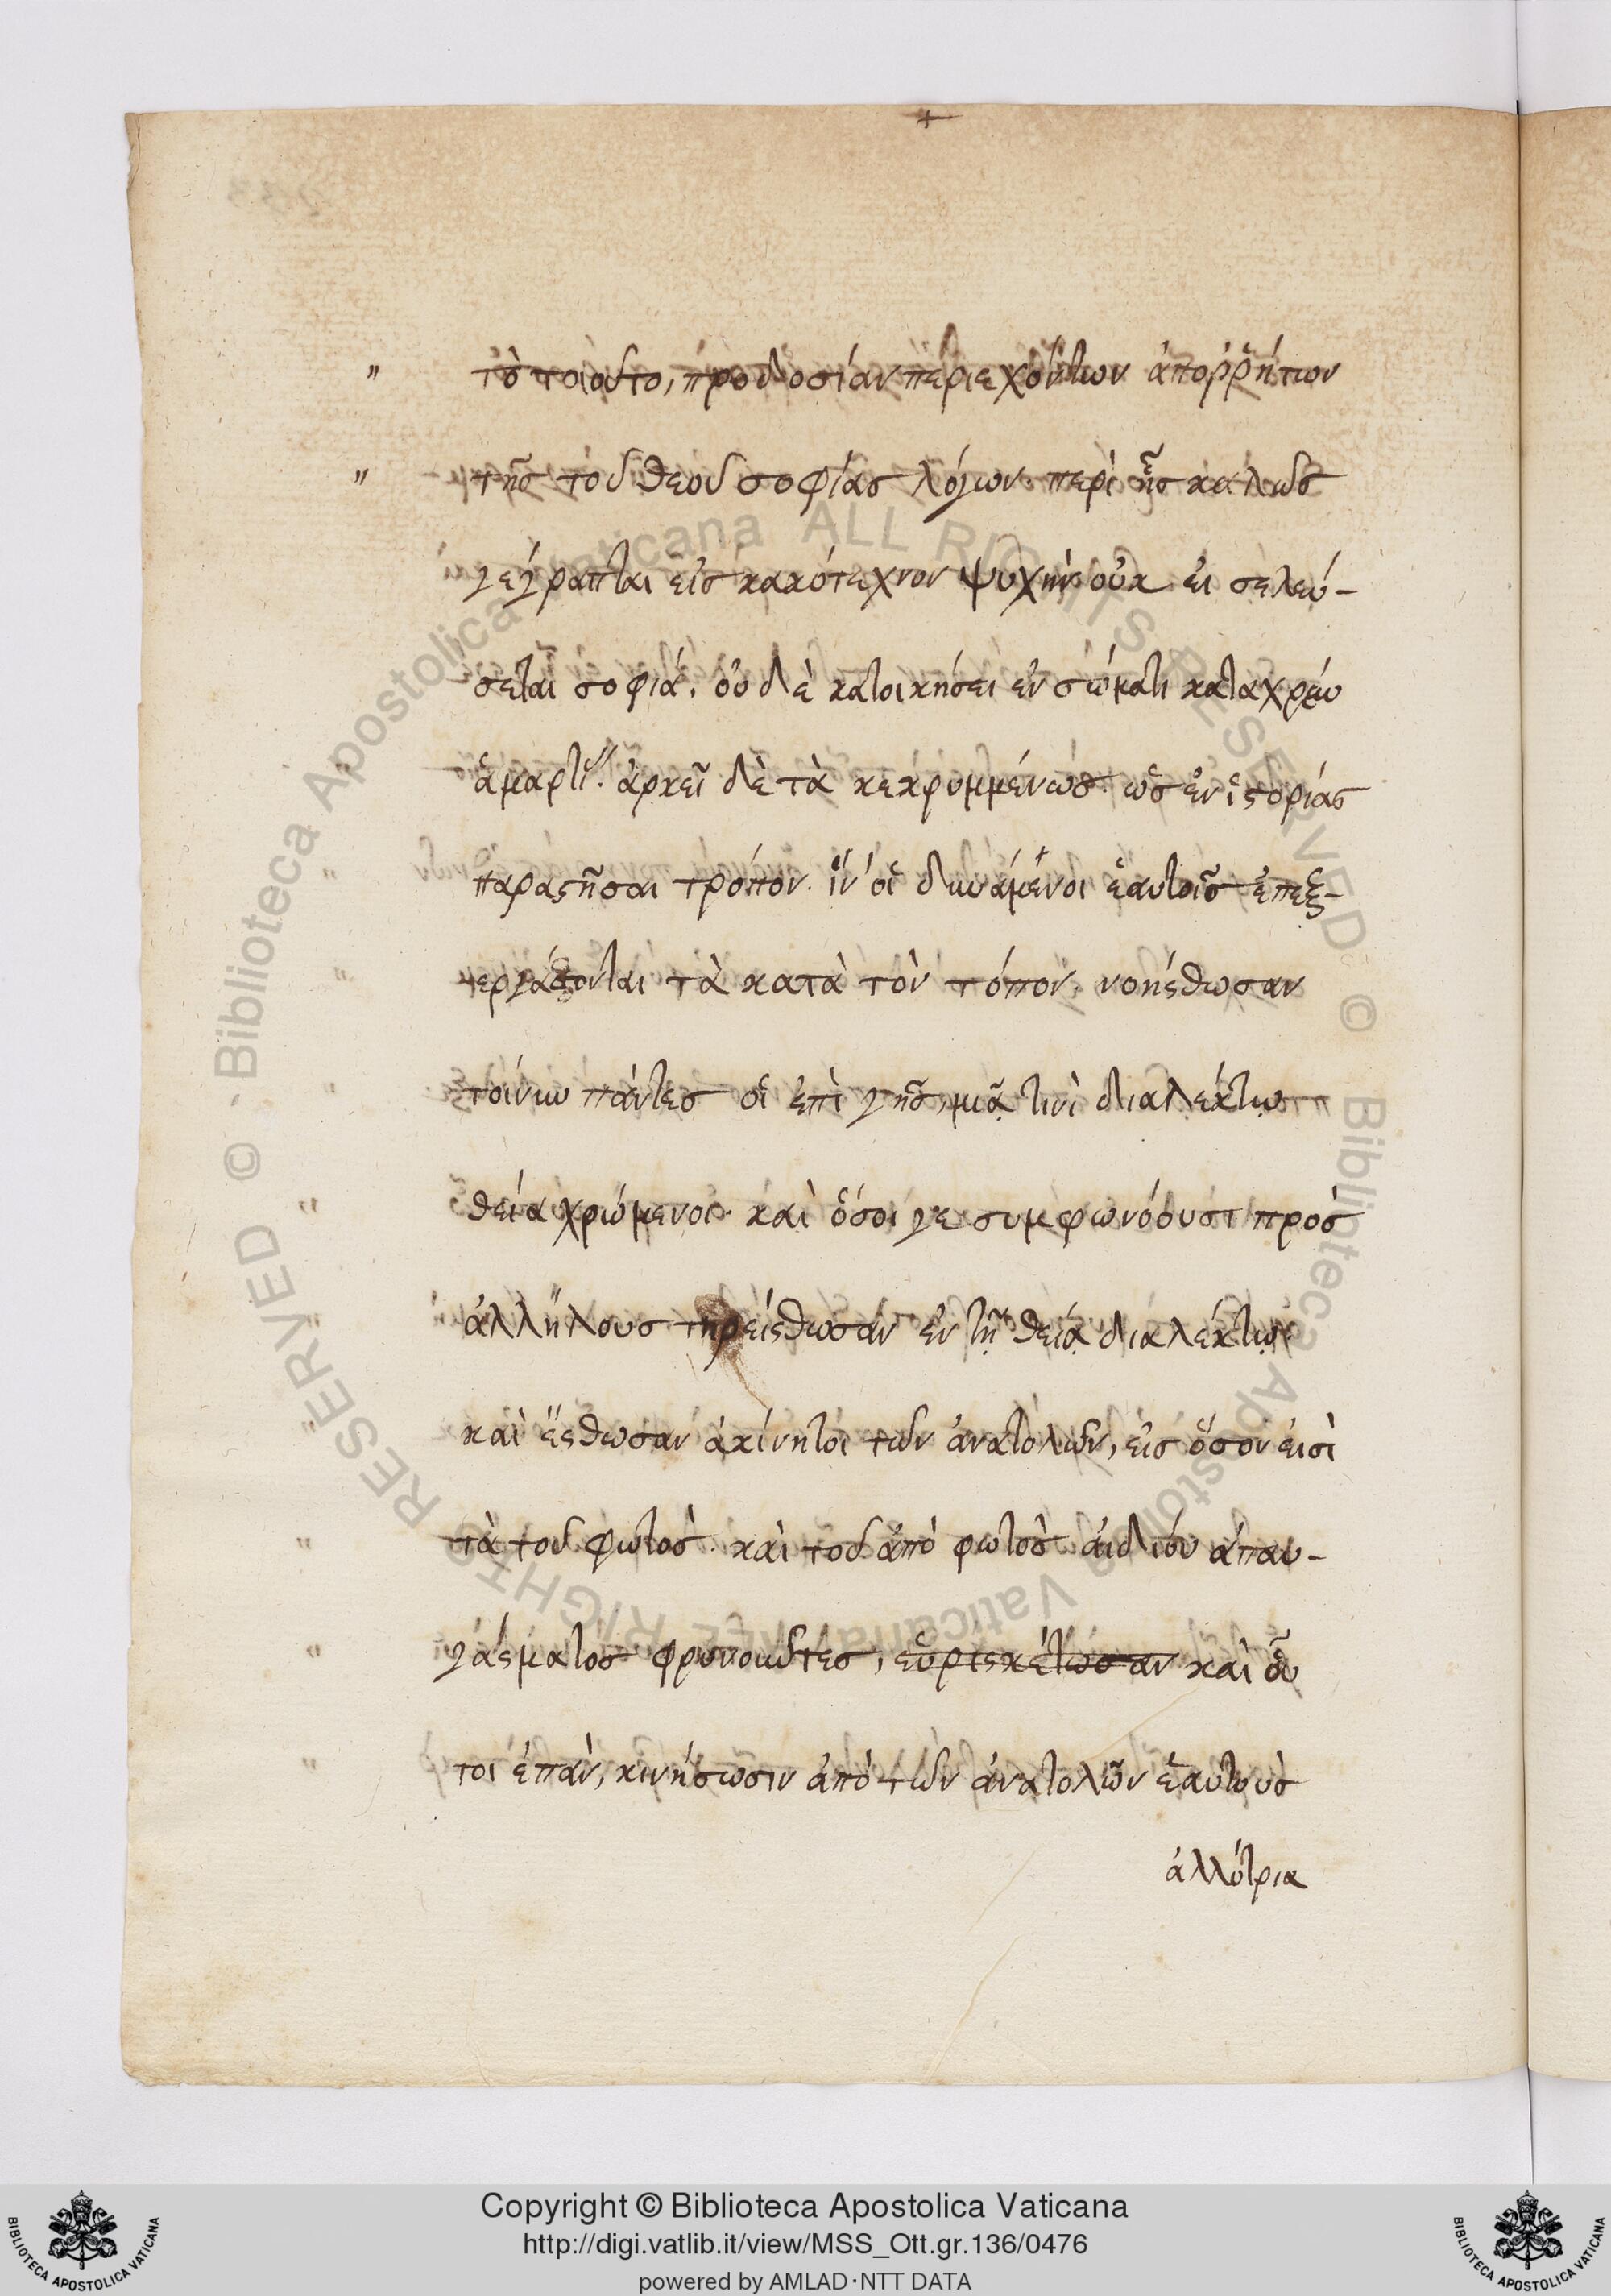 " τὸ τοιοῦτο, προδοσίαν περιεχόντων ἀποῤῥήτων
" τῆς τοῦ θεοῦ σοφίας λόγων. περὶ ἧς καλῶς
γέγραπται εἰς κακότεχνον ψυχὴν οὐκ εἰ σελεύ-
σεται σοφιά. οὐδὲ κατοικήσει ἐν σώματι καταχρέω
ἁμαρτί. ἀρκεῖ δὲ τὰ κεκρυμμένως. ὡς ἐν ἱστορίας
παραστῆσαι τρόπον. ἵν' οἱ δυνάμενοι ἑαυτοῖς ἐπεξ-
εργάζονται τὰ κατὰ τὸν τόπον. νοήσθωσαν
τοίνυν πάντες οἱ ἐπὶ γῆς, μιᾷ τινὶ διαλέκτῳ
θεία χρώμενοι. καὶ ὅσοι γε συμφωνόουσι πρὸς
ἀλλήλους τηρείσθωσαν ἐν τῇ θείᾳ διαλέκτῳ.
καὶ ἔσθωσαν ἀκίνητοι τῶν ἀνατολῶν, εἰς ὅσον εἰσὶ
τὰ τοῦ φωτὸς. καὶ τοῦ ἀπὸ φωτὸς ἀιδίου ἀπαυ-
γάσματος φρονοῦντες, εὑρισκέτωσαν καὶ οὗ
τοι ἐπὰν, κινήσωσιν ἀπὸ τῶν ἀνατολῶν ἑαυτοὺς
ἀλλότρια
Copyright © Biblioteca Apostolica Vaticana
http://digi.vatlib.it/view/MSS_Ott.gr.136/0476
powered by AMLAD·NTT DATA
BIBLIOTECA APOSTOLICA VATICANA
BIBLIOTECA APOSTOLICA VATICANA
© Biblioteca Apostolica Vaticana ALL RIGHTS RESERVED © Biblioteca Apostolica Vaticana ALL RIGHTS RESERVED